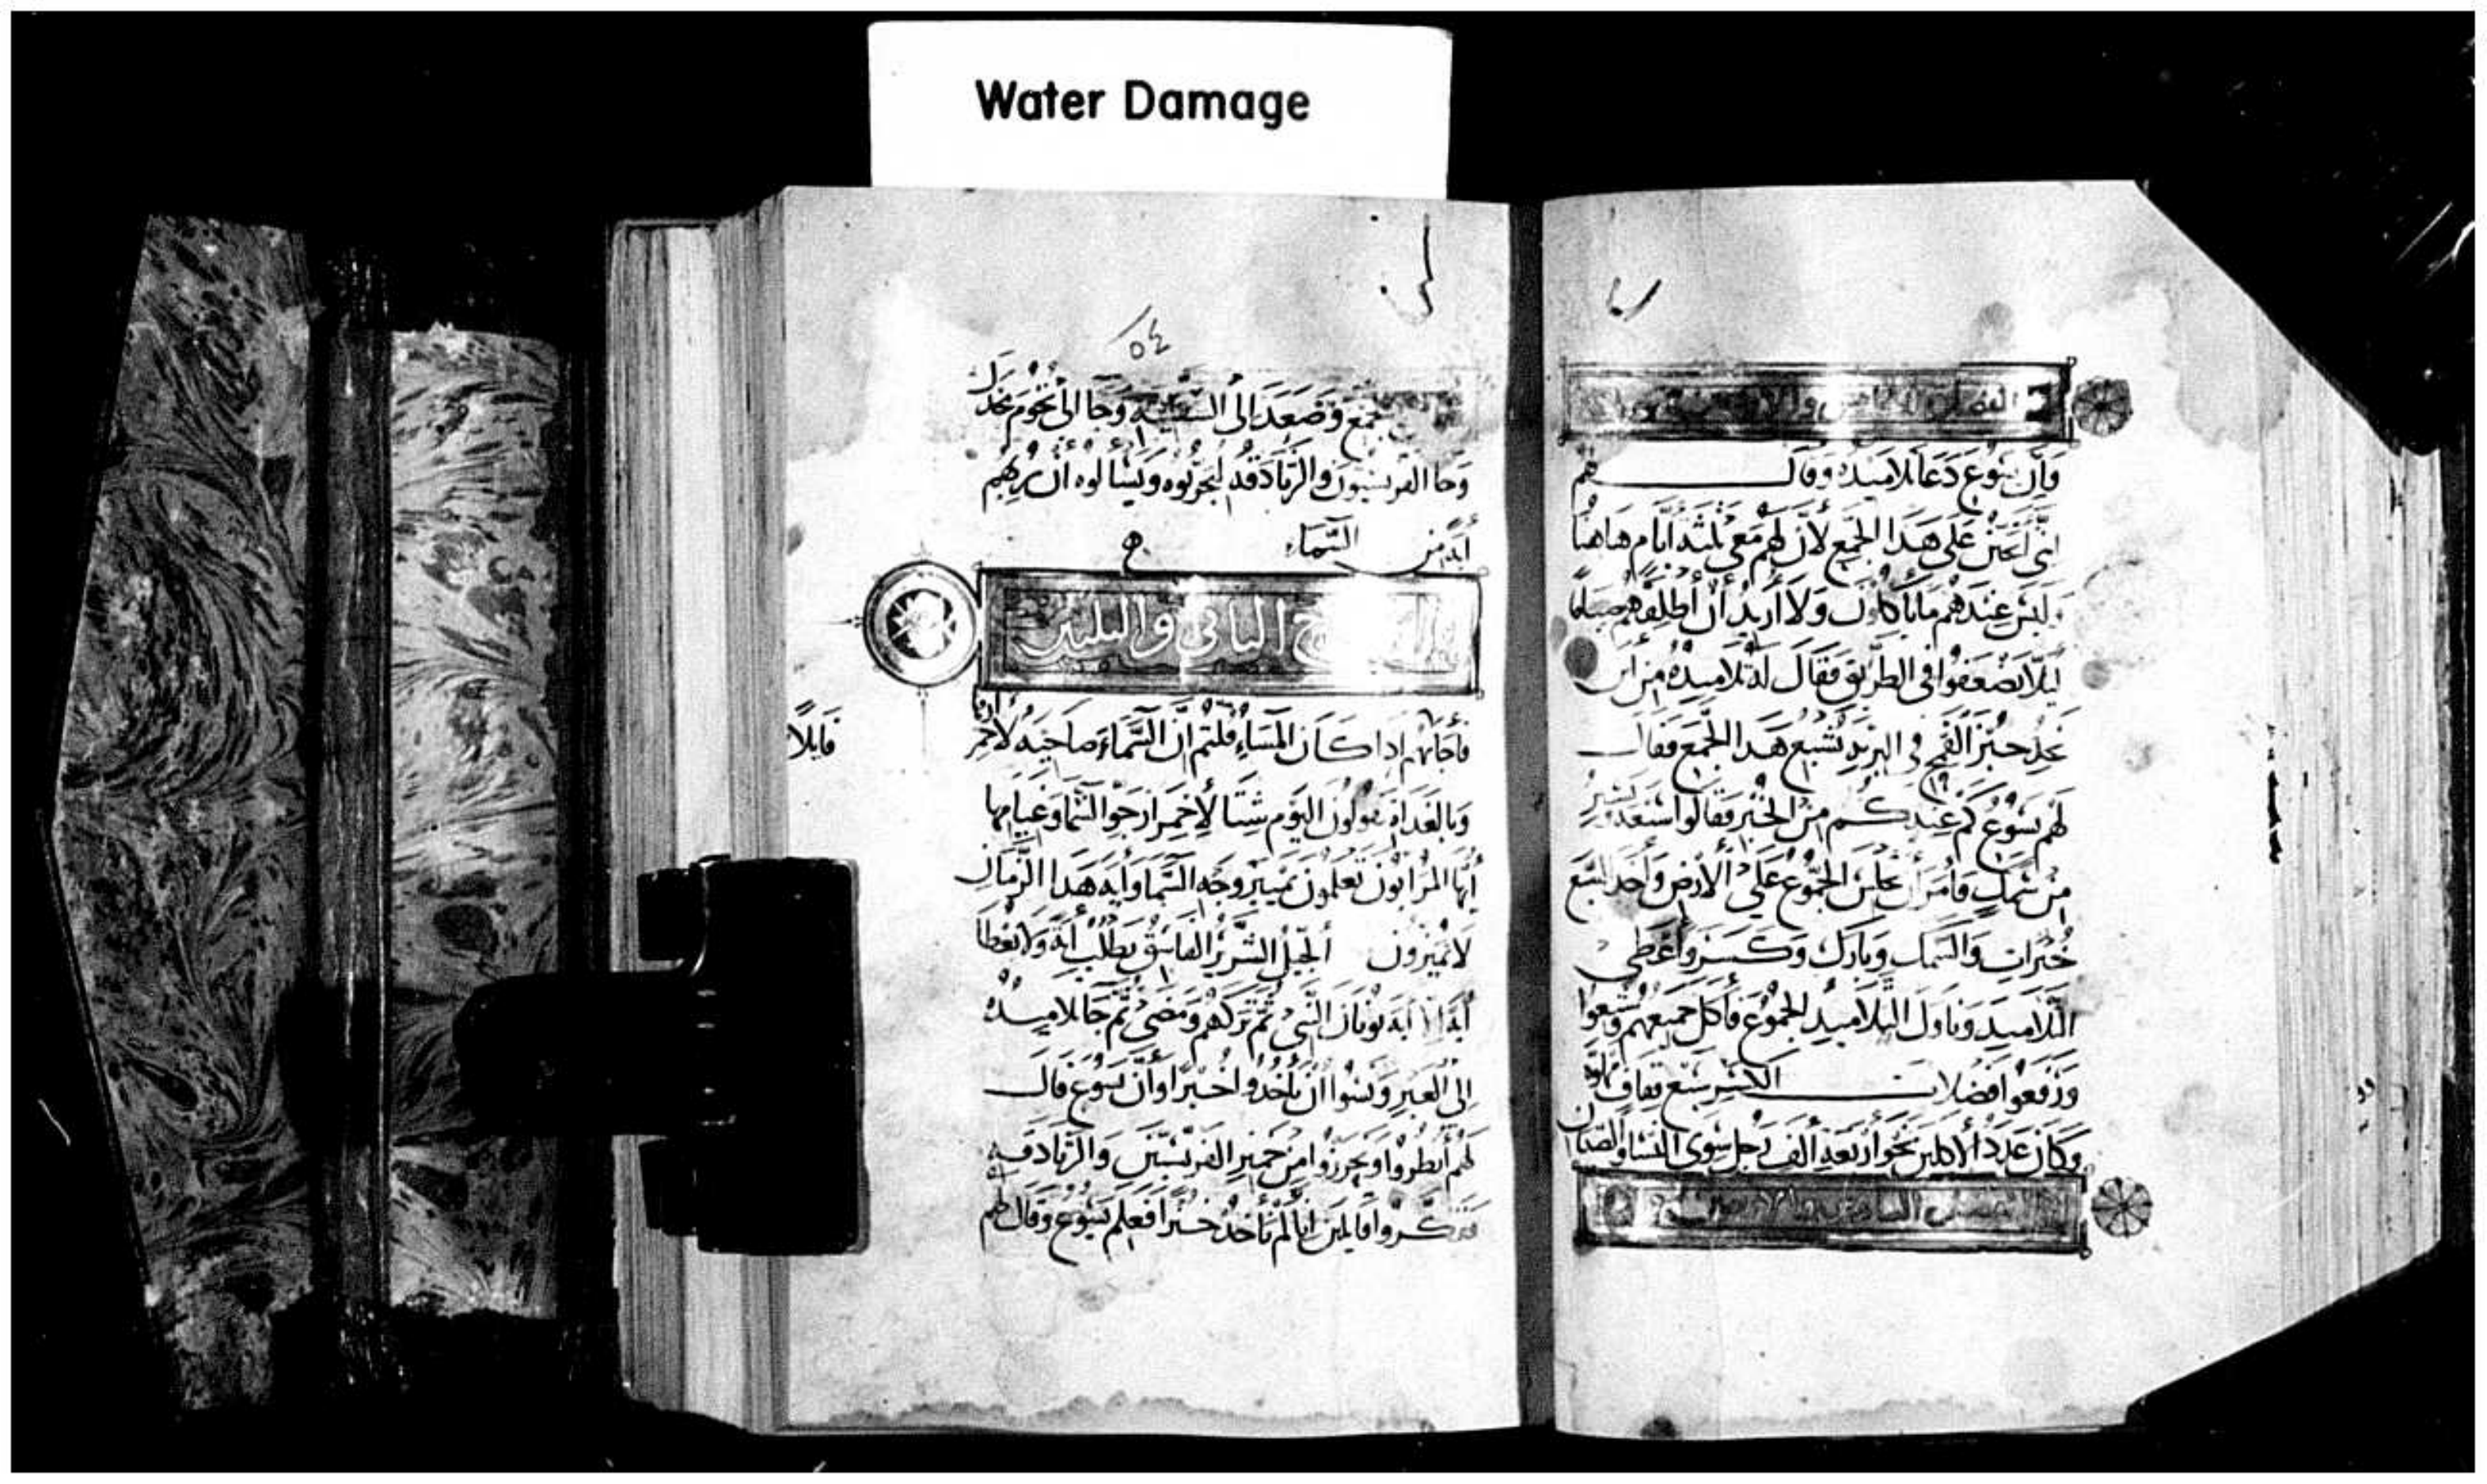 Water Damage
وان يسوع دعا تلاميذه وقال لهم
اني اتحنن على هذا الجمع لان لهم معي ثلثة ايام هاهنا
وليس عندهم ما ياكلون ولا اريد ان اطلقهم صياما
ليلا يضعفوا في الطريق فقال له تلاميذه من اين
نجد خبز القمح في البرية يشبع هذا الجمع فقال
لهم يسوع كم عندكم من الخبز فقالوا سبعة ويسير
من سمك فامر ان يجلس الجموع على الارض واخد السبع
خبزات والسمك وبارك وكسر واعطى
التلاميد وناول التلاميد الجموع فاكل جميعهم وشبعوا
ورفعوا فضلات الكسر سبع قفاف
وكان عدد الاكلين نحو اربعة الف رجل سوى النسا والصبيان
٥٤
جمع وصعد الى السفينة وجا الى تخوم مجدل
وجا الفريسيون والزنادقة ليجربوه ويسالوه ان يريهم
اية من السماء
الثاني والثلثين
فاجابهم اذا كان المساء قلتم ان السماء صاحية لاحمرارها
وبالغداة تقولون اليوم شتا لاحمرار جو السما وغيامها
ايها المرايون تعلمون تمييز وجه السما واية هدا الزمان
لا تميزون الجيل الشرير الفاسق يطلب اية ولا يعطا
اية الا اية يونان النبي ثم تركهم ومضى ثم جا تلاميذه
الى العبر ونسوا ان ياخدوا خبزا وان يسوع قال
لهم انظروا وتحرزوا من خمير الفريسيين والزنادقة
ففكروا قايلين انا لم ناخد خبزا فعلم يسوع وقال لهم
قايلا